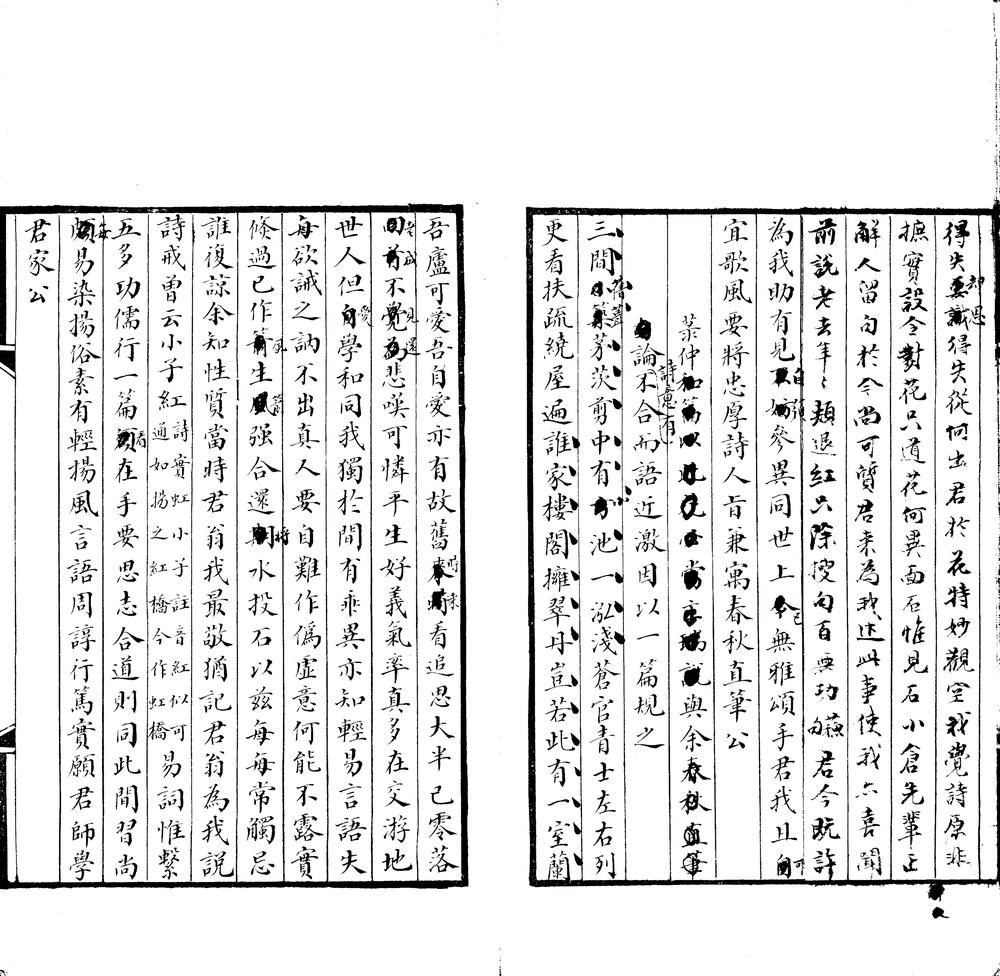 得失要識得失從何出君於花特妙觀空我覺詩原非
却思
摭實設令對花只道花何異面石惟見石小倉先輩正
解人留句於今尚可質君来為我述此事使我亦喜聞
前說老去年〻類退紅只除搜句百無功
為我助有見
自
參異同世上
已
無雅頌手君我且
宜歌風要將忠厚詩人旨兼寓春秋直筆公
菉仲和篇
與余春秋直筆
論不合而語近激因以一篇規之
詩意有
三間
茅茨剪中有
小
池一泓淺蒼官青士左右列
更看扶疏繞屋遍誰家樓閣擁翠丹豈若此有一室蘭
吾廬可愛吾自愛亦有故舊
時來
看追思大半已零落
老成
不
見還
悲嘆可憐平生好義氣率真多在交游地
世人但
愛
學和同我獨於間有乖異亦知輕易言語失
每欲誡之訥不出真人要自難作偽虛意何能不露實
倏過已作
風
生
箭
强合還
將
水投石以茲每每常觸忌
誰復諒余知性質當時君翁我最敬猶記君翁為我說
詩戒曾云小子紅
詩實虹小子註音紅似可
通如揚之紅橋今作虹橋
易詞惟繫
五多功儒行一篇
看
在手要思志合道則同此間習尚
每
易染揚俗素有輕揚風言語周諄行篤實願君師學
君家公